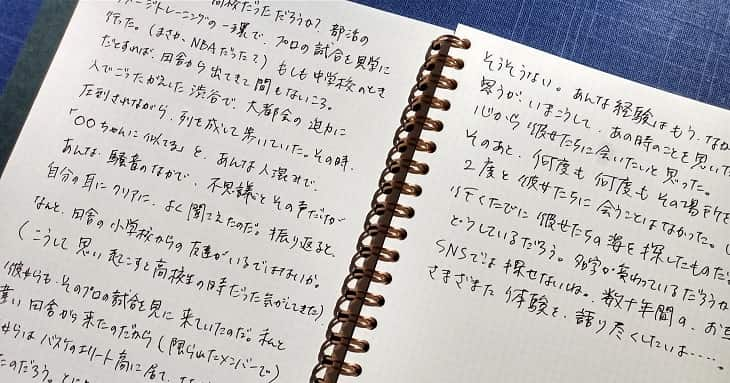 高校だっただろうか？部活の
イメージトレーニングの一環で、プロの試合を見学に
行った。（まさか、NBAだったて）もしも中学校のとき
だとすれば、田舎から出てきて間もないころ。
人でごったがえした渋谷で、大都会の迫力に
圧倒されながら、列を成して歩いていた。その時、
「〇〇ちゃんに似てる」と、あんな人混みで、
あんな騒音のなかで、不思議とその声だけが
自分の耳にクリアに、よく聞こえたのだ。振り返ると、
なんと、田舎の小学校からの友達がいるではないか。
（こうして思い起こすと高校生の時だった気がしてきた）
彼女らも、そのプロの試合を見に来ていたのだ。私と
違い田舎から来たのだから（限られたメンバーで）
らはバスケのエリート高に居て、
たのだろう。
そうそうない。あんな経験はもう、なか
思うが、いまこうして、あの時のことを思いた
心から彼女たちに会いたいと思った。
そのあと、何度も何度もその場所を
2度と彼女たちに会うことはなかった。
行くたびに彼女たちの姿を探したものだ
どうしているだろう。名字が変わっているだろうな
SNSでは探せないね。数十年間の、お互
さまざまな体験を、語り尽くしたいは……。